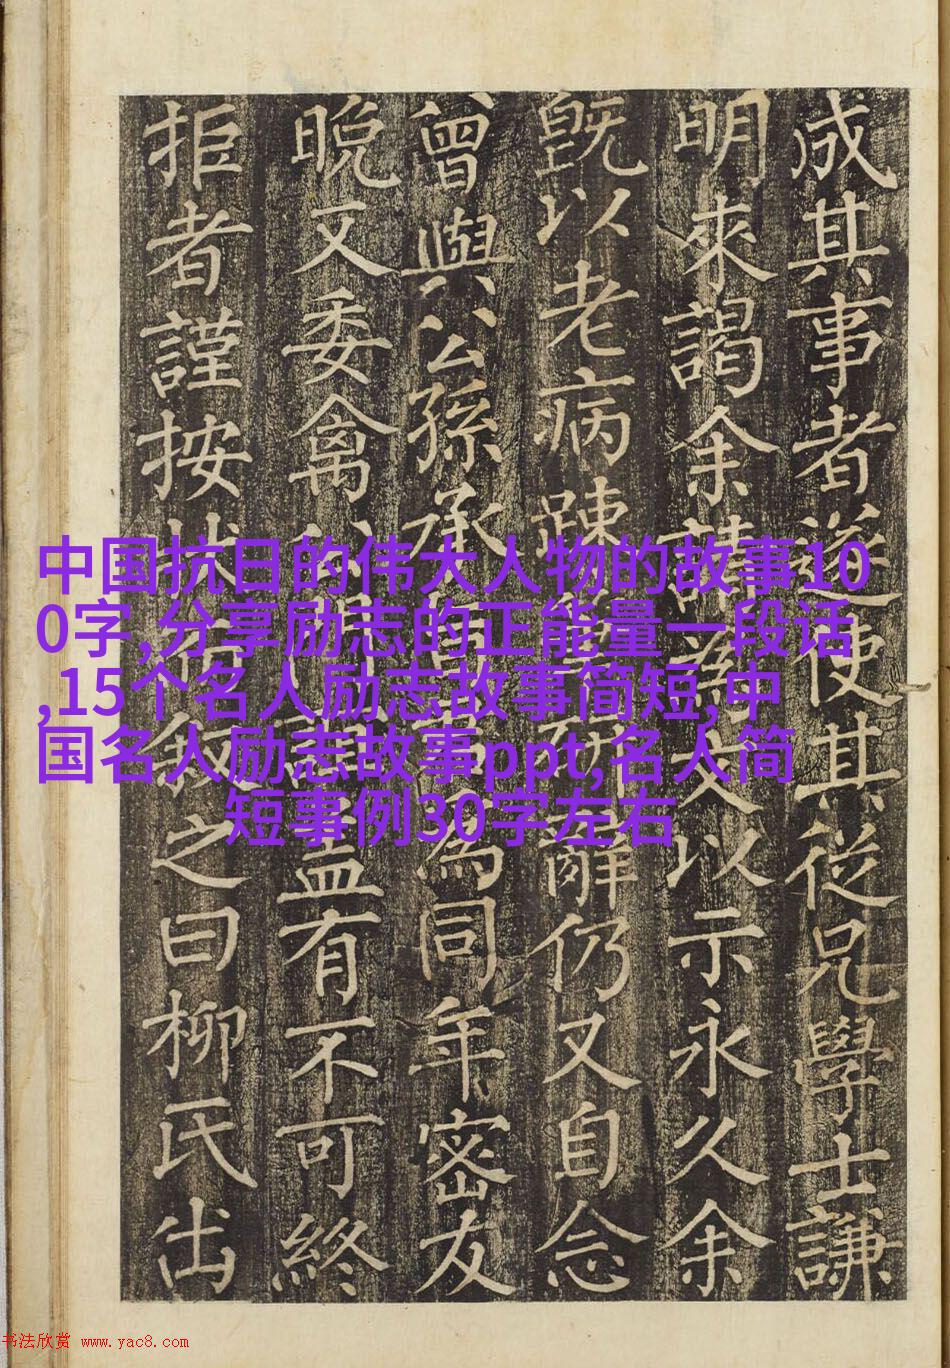 成其事者遂使其從兄學士謙
明來謁余請為文以示永久余
既以老病踈辭仍又自念
曾與公孫承為同年密友
晚又委禽盖有不可終
拒者謹按狀叙之曰柳氏出
中国抗日的伟大人物的故事10
0字,分享励志的正能量一段话
,15个名人励志故事简短,中
国名人励志故事ppt,名人简
短事例30字左右
书法欣赏 www.yac8.com